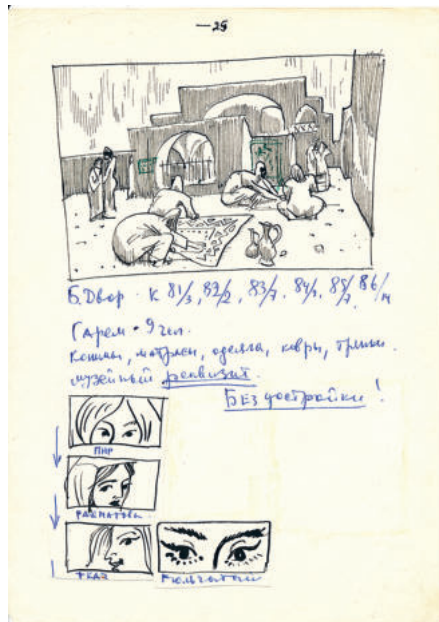 —25
Б. Двор - К 81/3, 82/2, 83/7, 84/1, 85/7, 86/14
Гарем - 9 чел.
кошмы, матрасы, одеяла, ковры,
музейный реквизит.
Без достройки!
ПИР
РАХМАТОВА
ТКАЗ
Гюльчатай